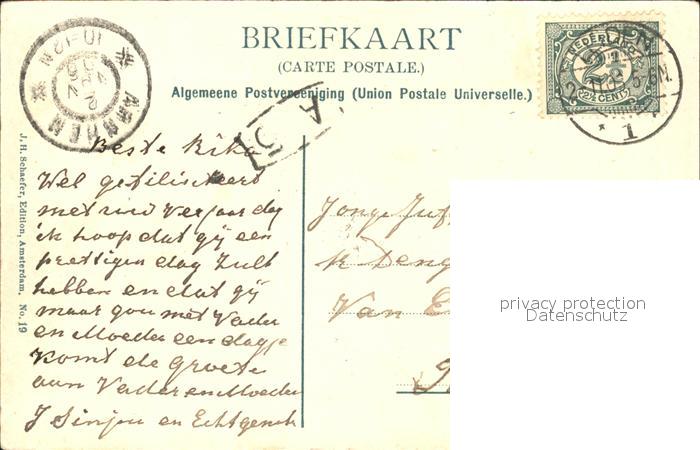 BRIEFKAART
(CARTE POSTALE.)
Algemeene Postvereeniging (Union Postale Universelle.)
NEDERLAND
2½
2½ CENT
ARNHEM
10-12 N
5-6 N
1
A
J. H. Schaefer, Edition, Amsterdam, No. 19
Beste Rika
Wel gefiliciteert
met uw Verjaardag
ik hoop dat gij een
prettigen dag zult
hebben en dat gij
maar gou met Vader
en Moeder een dagje
Komt de Groete
aan Vader en Moeder
J Sinjou en Echtgenoh
Jonge Juf
Van E
privacy protection
Datenschutz